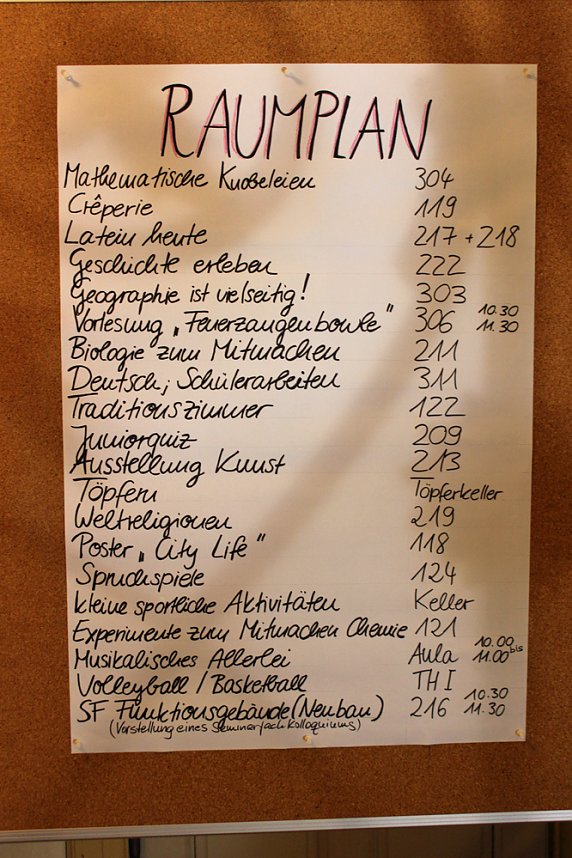 RAUMPLAN
Mathematische Knobeleien 304
Crêperie 119
Latein heute 217 + 218
Geschichte erleben 222
Geographie ist vielseitig! 303
Vorlesung „Feuerzangenbowle" 306 10.30 11.30
Biologie zum Mitmachen 211
Deutsch; Schülerarbeiten 311
Traditionszimmer 122
Juniorquiz 209
Ausstellung Kunst 213
Töpfern Töpferkeller
Weltreligionen 219
Poster „City Life" 118
Spruchspiele 124
kleine sportliche Aktivitäten Keller
Experimente zum Mitmachen Chemie 121
Musikalisches Allerlei Aula 10.00 bis 11.00
Volleyball / Basketball TH I
SF Funktionsgebäude (Neubau) 216 10.30 11.30
(Vorstellung eines Seminarfachkolloquiums)